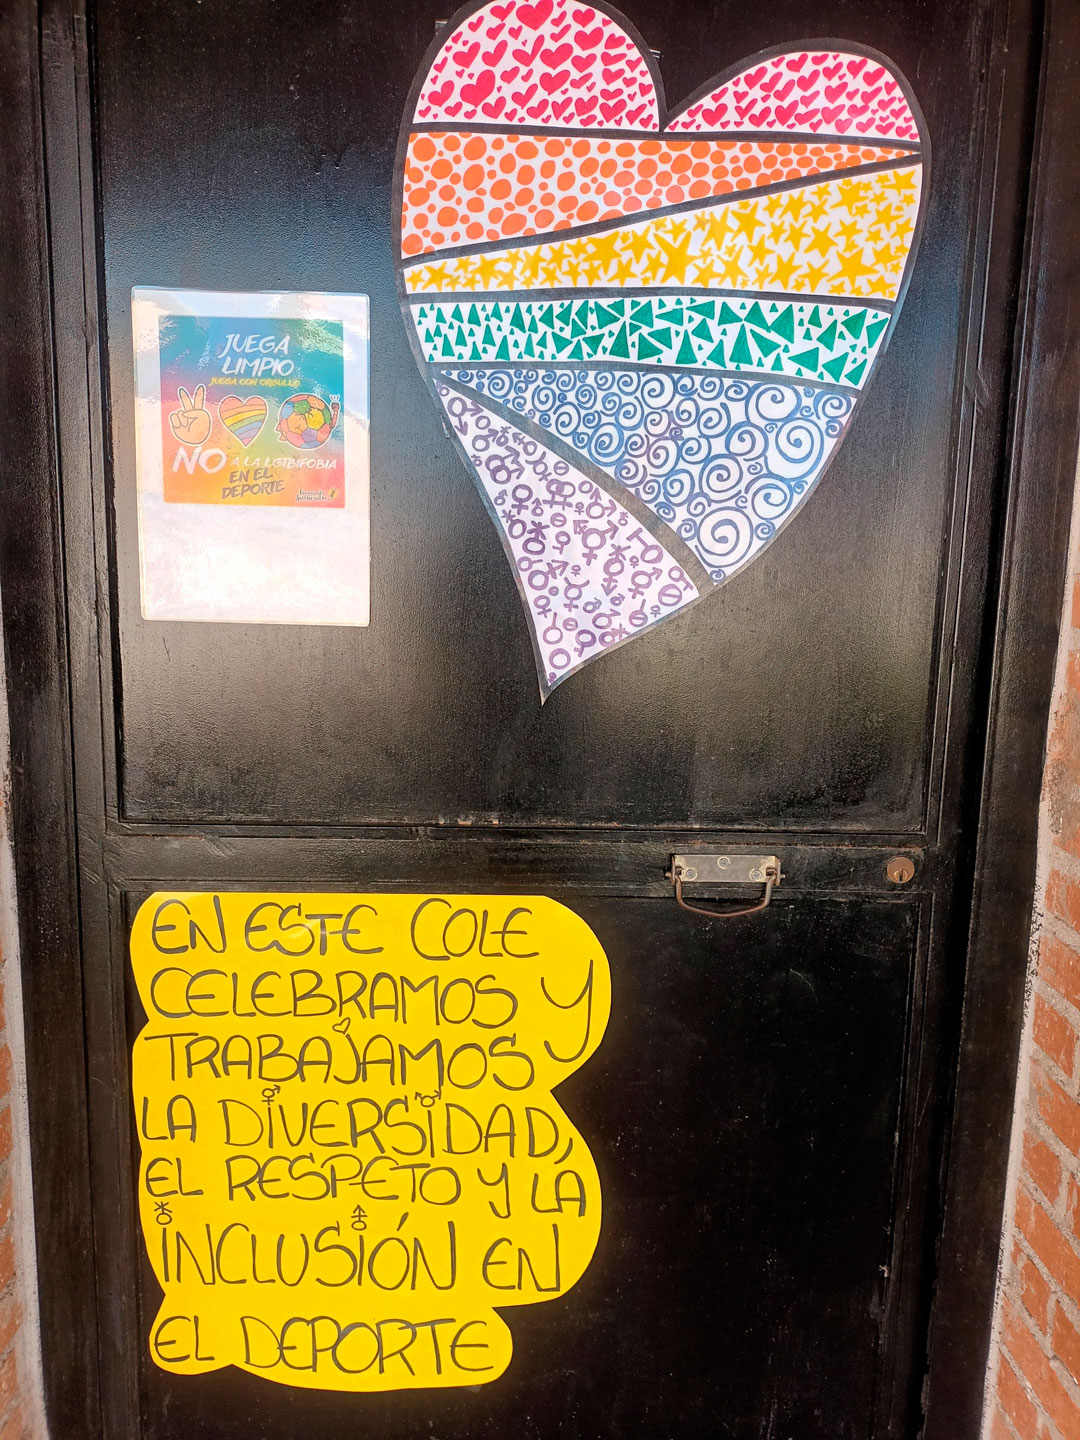 JUEGA
LIMPIO
JUEGA CON ORGULLO
NO A LA LGTBIFOBIA
EN EL
DEPORTE
EN ESTE COLE
CELEBRAMOS Y
TRABAJAMOS
LA DIVERSIDAD,
EL RESPETO Y LA
INCLUSIÓN EN
EL DEPORTE